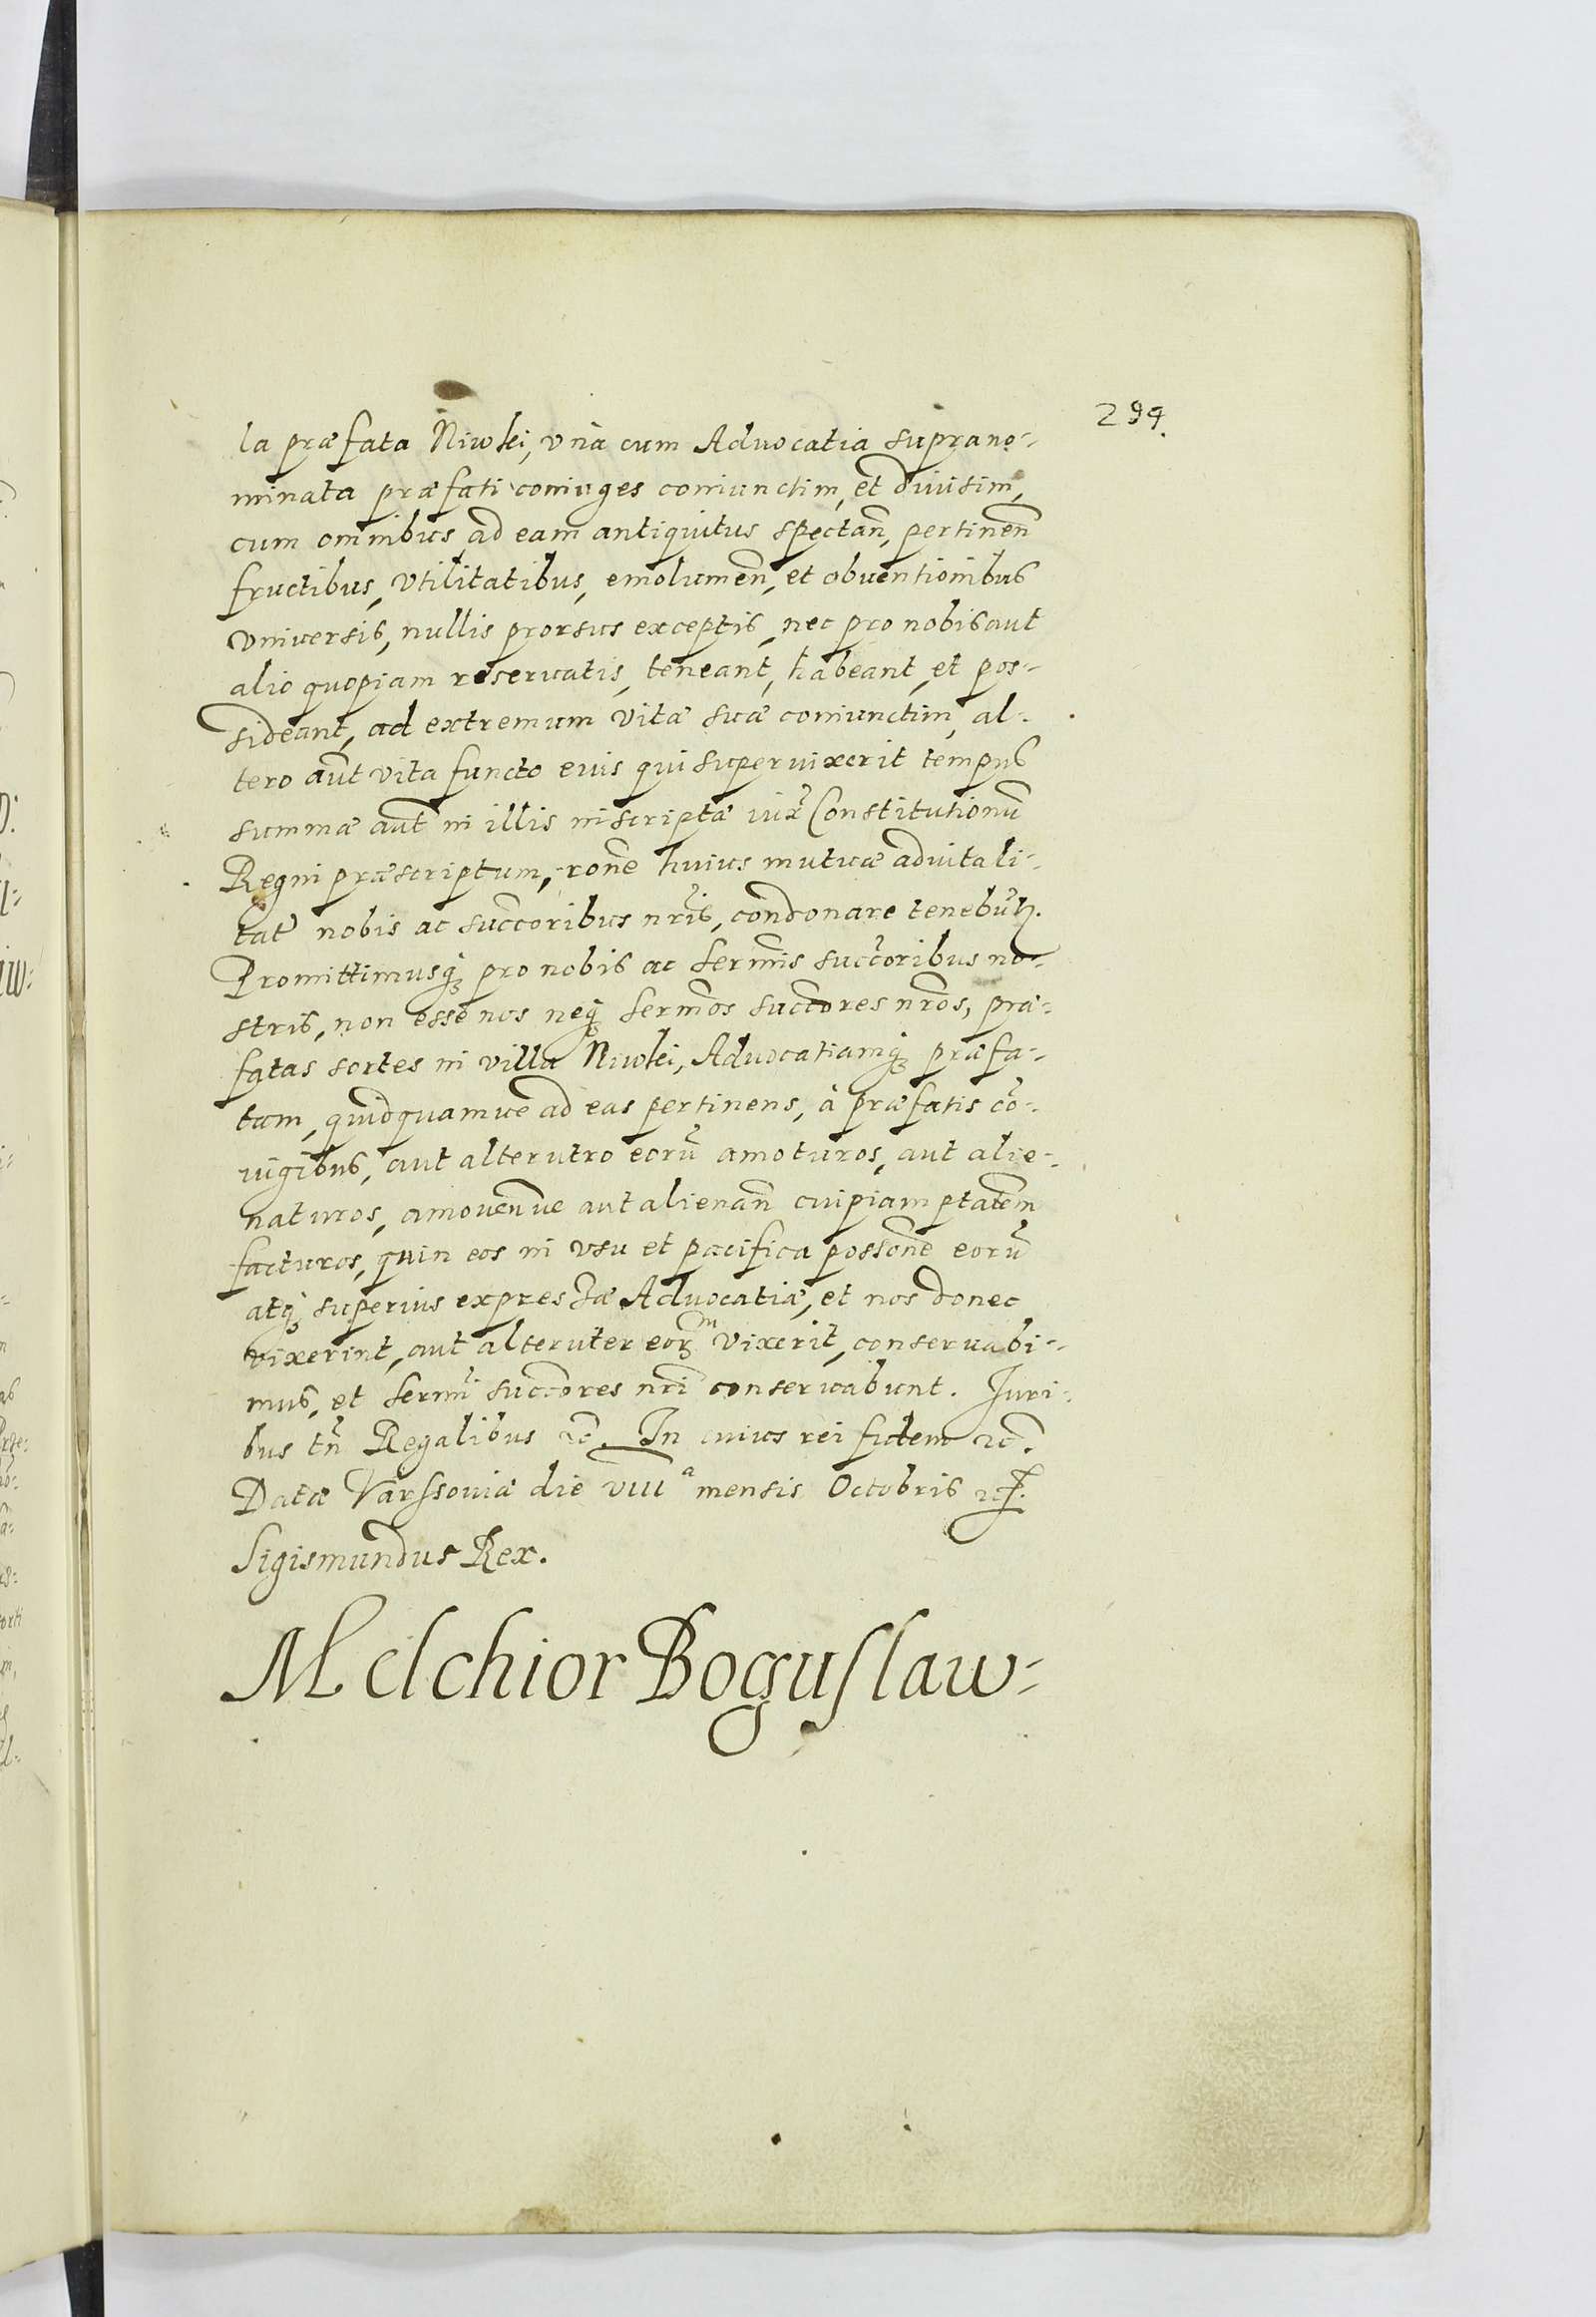 294.
la præfata Niwki, unà cum Advocatia suprano-
minata præfati coniuges coniunctim, et divisim,
cum omnibus ad eam antiquitus spectan̄, pertinen̄
fructibus, vtilitatibus, emolumen̄, et obventionibus
vniversis, nullis prorsus exceptis, nec pro nobis aut
alio quopiam reservatis, teneant, habeant, et pos-
sideant, ad extremum vitæ suæ coniunctim, al-
tero aūt vita functo eius qui supervixerit tempus
summæ aūt in illis inscriptæ iux̄ Constitutionū
Regni præscriptum, rōne huius mutuæ advitali-
tat̄ nobis ac succ̄oribus nr̄is, condonare tenebūt̄.
Promittimusq̨ pro nobis ac serm̄is succ̄oribus no-
stris, non esse nos neq̨ serm̄os succ̄ores nr̄os, præ-
fatas sortes in villa Niwki, Advocatiamq̨ præfa-
tam, quidquamve ad eas pertinens, à præfatis cō-
iugibus, aut alterutro eorū amoturos, aut alie-
naturos, amoven̄ve aut alienan̄ cuipiam p̄tatem
facturos, quin eos in vsu et pacifica possōne eorū
atq̨ superius expressæ Advocatiæ, et nos donec
vixerint, aut alteruter eorm vixerit, conservabi-
mus, et serm̄i succ̄ores nr̄i conservabunt. Juri-
bus tn̄ Regalibus ꝛc̄. In cuius rei fidem ꝛc̄.
Datæ Varssoviæ die viiiª mensis Octobris
Sigismundus Rex.
Melchior Boguslaw-